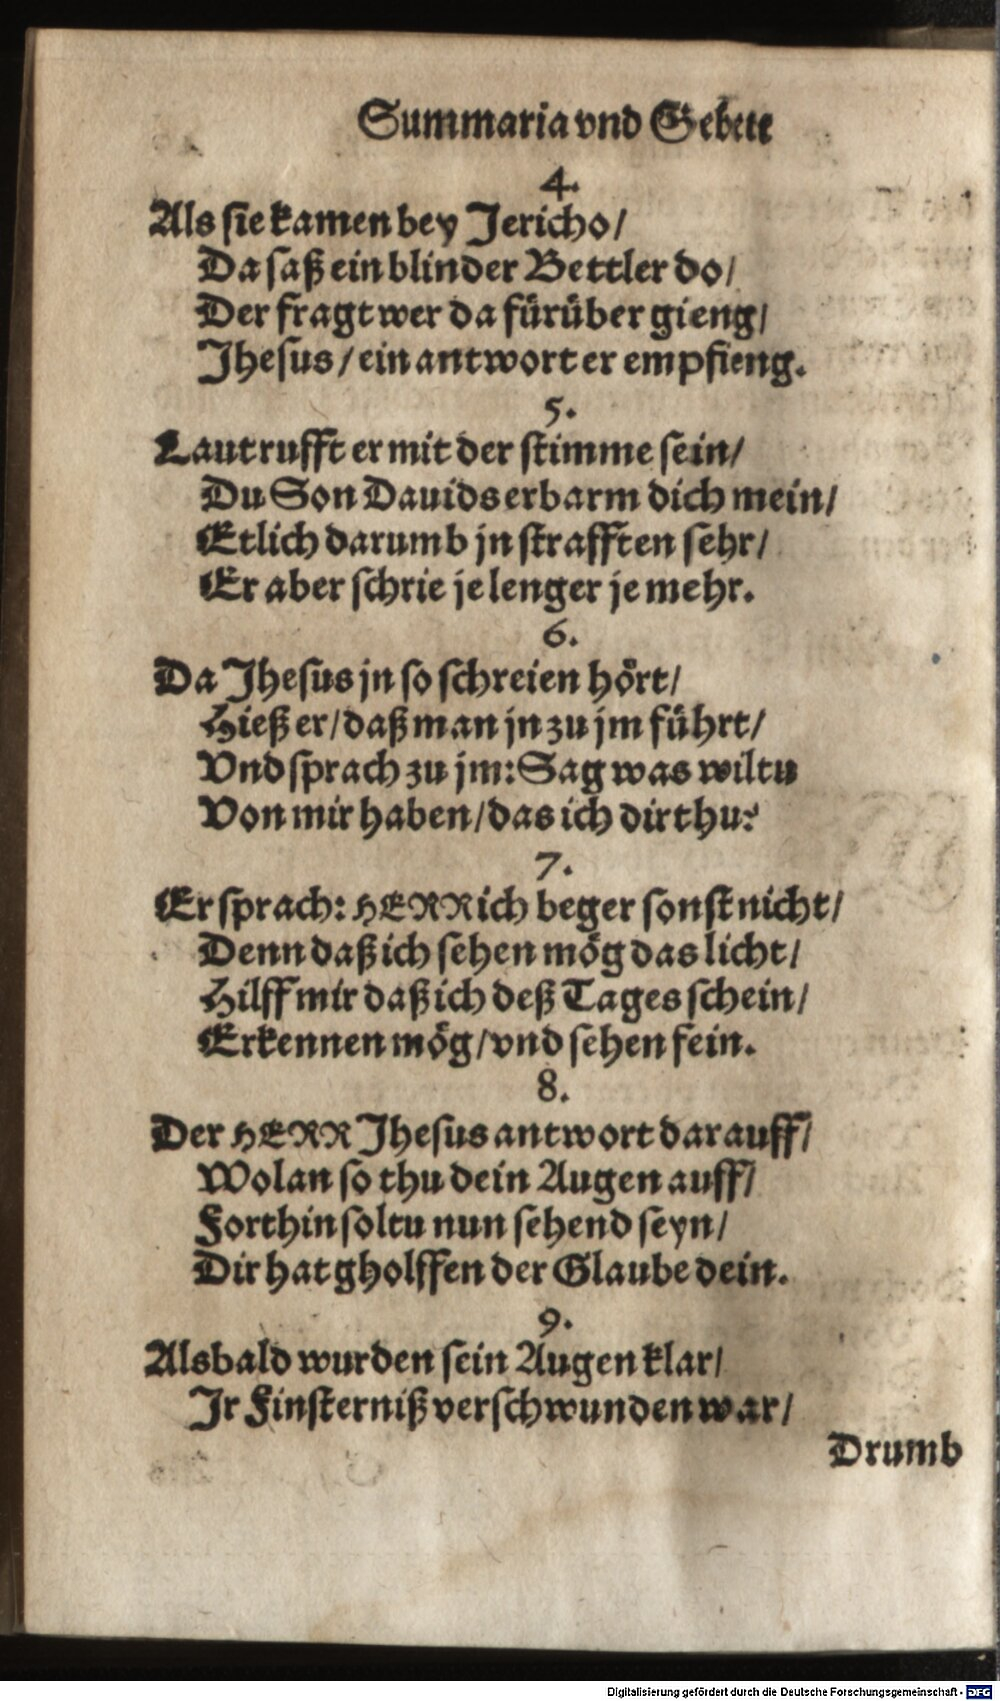 Summaria vnd Gebete
4.
Als sie kamen bey Jericho/
Da saß ein blinder Bettler do/
Der fragt wer da fürüber gieng/
Jhesus/ ein antwort er empfieng.
5.
Laut rufft er mit der stimme sein/
Du Son Dauids erbarm dich mein/
Etlich darumb jn strafften sehr/
Er aber schrie je lenger je mehr.
6.
Da Jhesus jn so schreien hört/
Hieß er/ daß man jn zu jm führt/
Vnd sprach zu jm: Sag was wiltu
Von mir haben/ das ich dir thu?
7.
Er sprach: HERR ich beger sonst nicht/
Denn daß ich sehen mög das licht/
Hilff mir daß ich deß Tages schein/
Erkennen mög/ vnd sehen fein.
8.
Der HERR Jhesus antwort darauff/
Wolan so thu dein Augen auff/
Forthin soltu nun sehend seyn/
Dir hat gholffen der Glaube dein.
9.
Alsbald wurden sein Augen klar/
Jr Finsterniß verschwunden war/
Drumb
Digitalisierung gefördert durch die Deutsche Forschungsgemeinschaft - DFG